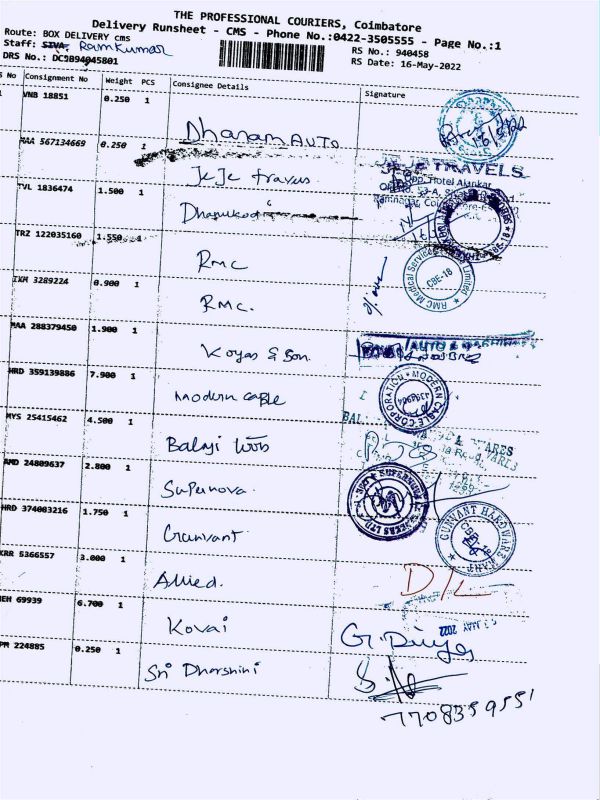 THE PROFESSIONAL COURIERS, Coimbatore
Delivery Runsheet - CMS - Phone No.:0422-3505555 - Page No.:1
Route: BOX DELIVERY cms
RS No.: 940458
Staff: SIVA. Ramkumar
RS Date: 16-May-2022
DRS No.: DC9894045801
S No Consignment No Weight PCS Consignee Details Signature
VNB 18851 0.250 1 Dhanam AUTO
MAA 567134669 0.250 1 JeJe travas
JE JE TRAVELS
Opp. Hotel Alankar
TVL 1836474 1.500 1
TRZ 122035160 1.550 1 RMC
RMC Medical Services Limited
CBE-18
IXM 3289224 0.900 1 RMC.
MAA 288379450 1.900 1 Koyas & Son.
HRD 359139886 7.900 1 modern cable
MODERN CABLE CORPORATION
MYS 25415462 4.500 1 Balaji
AMD 24809637 2.800 1 Supernova.
HRD 374003216 1.750 1 Gunvant
GUNVANT HARDWARE MART
KRR 5366557 3.000 1 Allied. D/L
MEH 69939 6.700 1 Kovai
MAY 2022
PM 224885 0.250 1 Sri Dharshini
7708359551